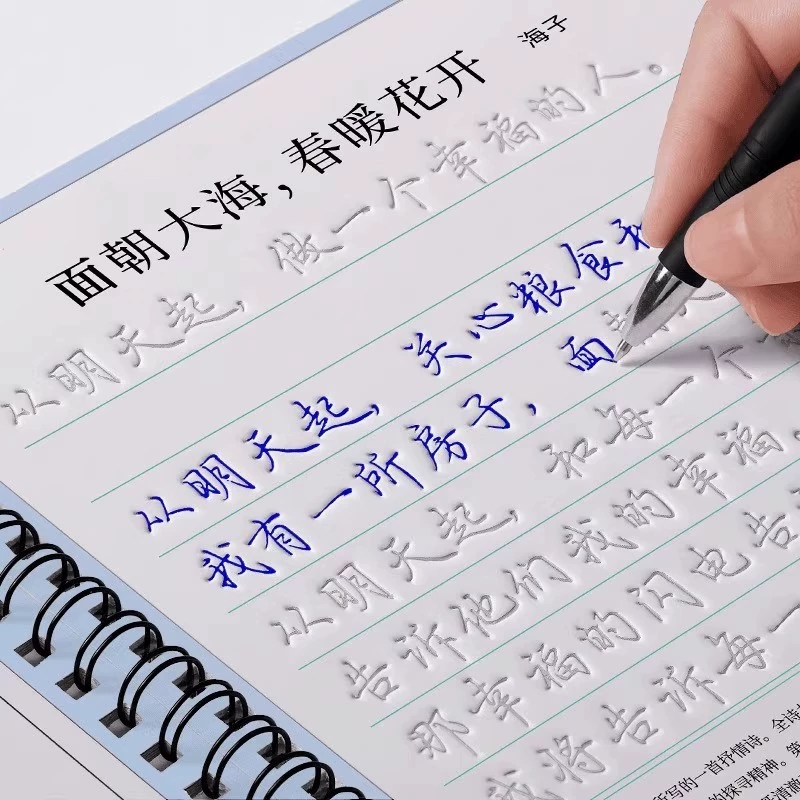 面朝大海，春暖花开
海子
从明天起，做一个幸福的人。
从明天起，关心粮食和
我有一所房子，面朝大
从明天起，和每一个
告诉他们我的幸福，
那幸福的闪电告
我将告诉每一
所写的一首抒情诗。全诗
的探寻精神。第
清澈